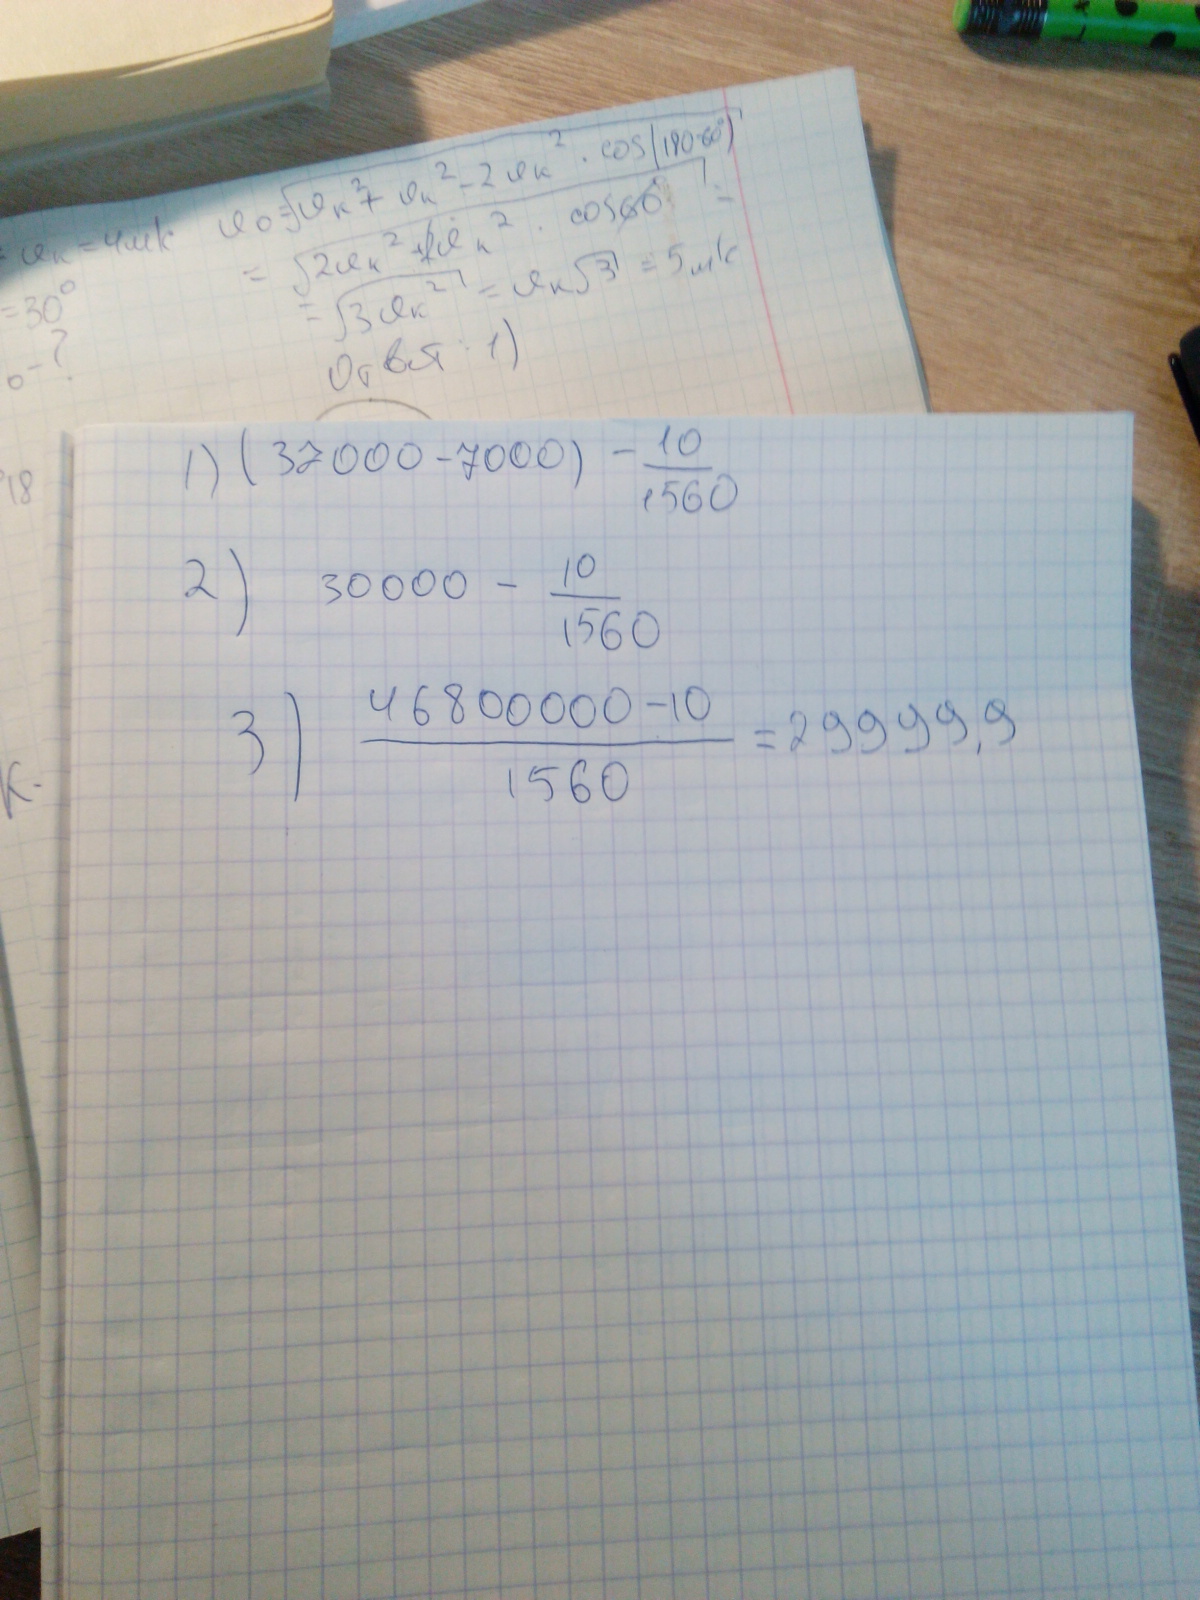 = 𝜗к = 4мк 𝜗о = √(𝜗к² + 𝜗к² - 2𝜗к² · cos(180-60°)) =
= √(2𝜗к² + 2𝜗к² · cos60°) =
= 30°
= √(3𝜗к²) = 𝜗к√3 = 5мк
о - ?
Ответ: 1)
18
1) (37000-7000) - 10/1560
2) 30000 - 10/1560
3) 46800000-10/1560 = 29999,9
к.